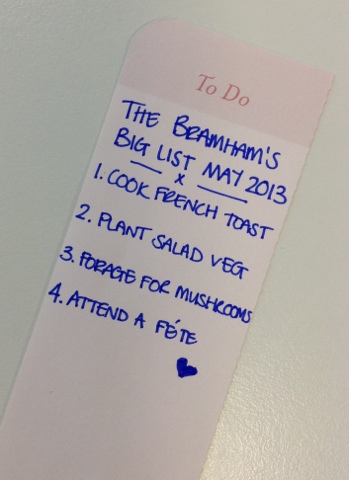 To Do
THE BRAMHAM'S
BIG LIST MAY 2013
x
1. COOK FRENCH TOAST
2. PLANT SALAD VEG
3. FORAGE FOR MUSHROOMS
4. ATTEND A FÉTE